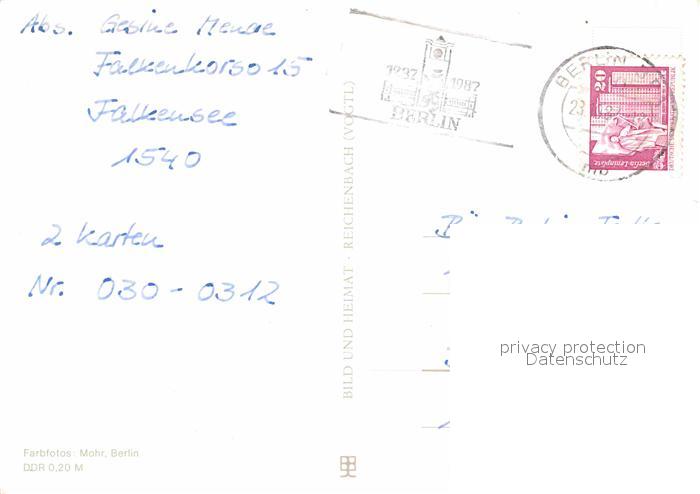 Abs. Gesine Menge
Falkenkorso 15
Falkensee
1540
2 Karten
Nr. 030-0312
Farbfotos: Mohr, Berlin
DDR 0,20 M
BILD UND HEIMAT · REICHENBACH (VOGTL)
1237 1987
BERLIN
BERLIN
23.
20
Berlin-Leninplatz
privacy protection
Datenschutz